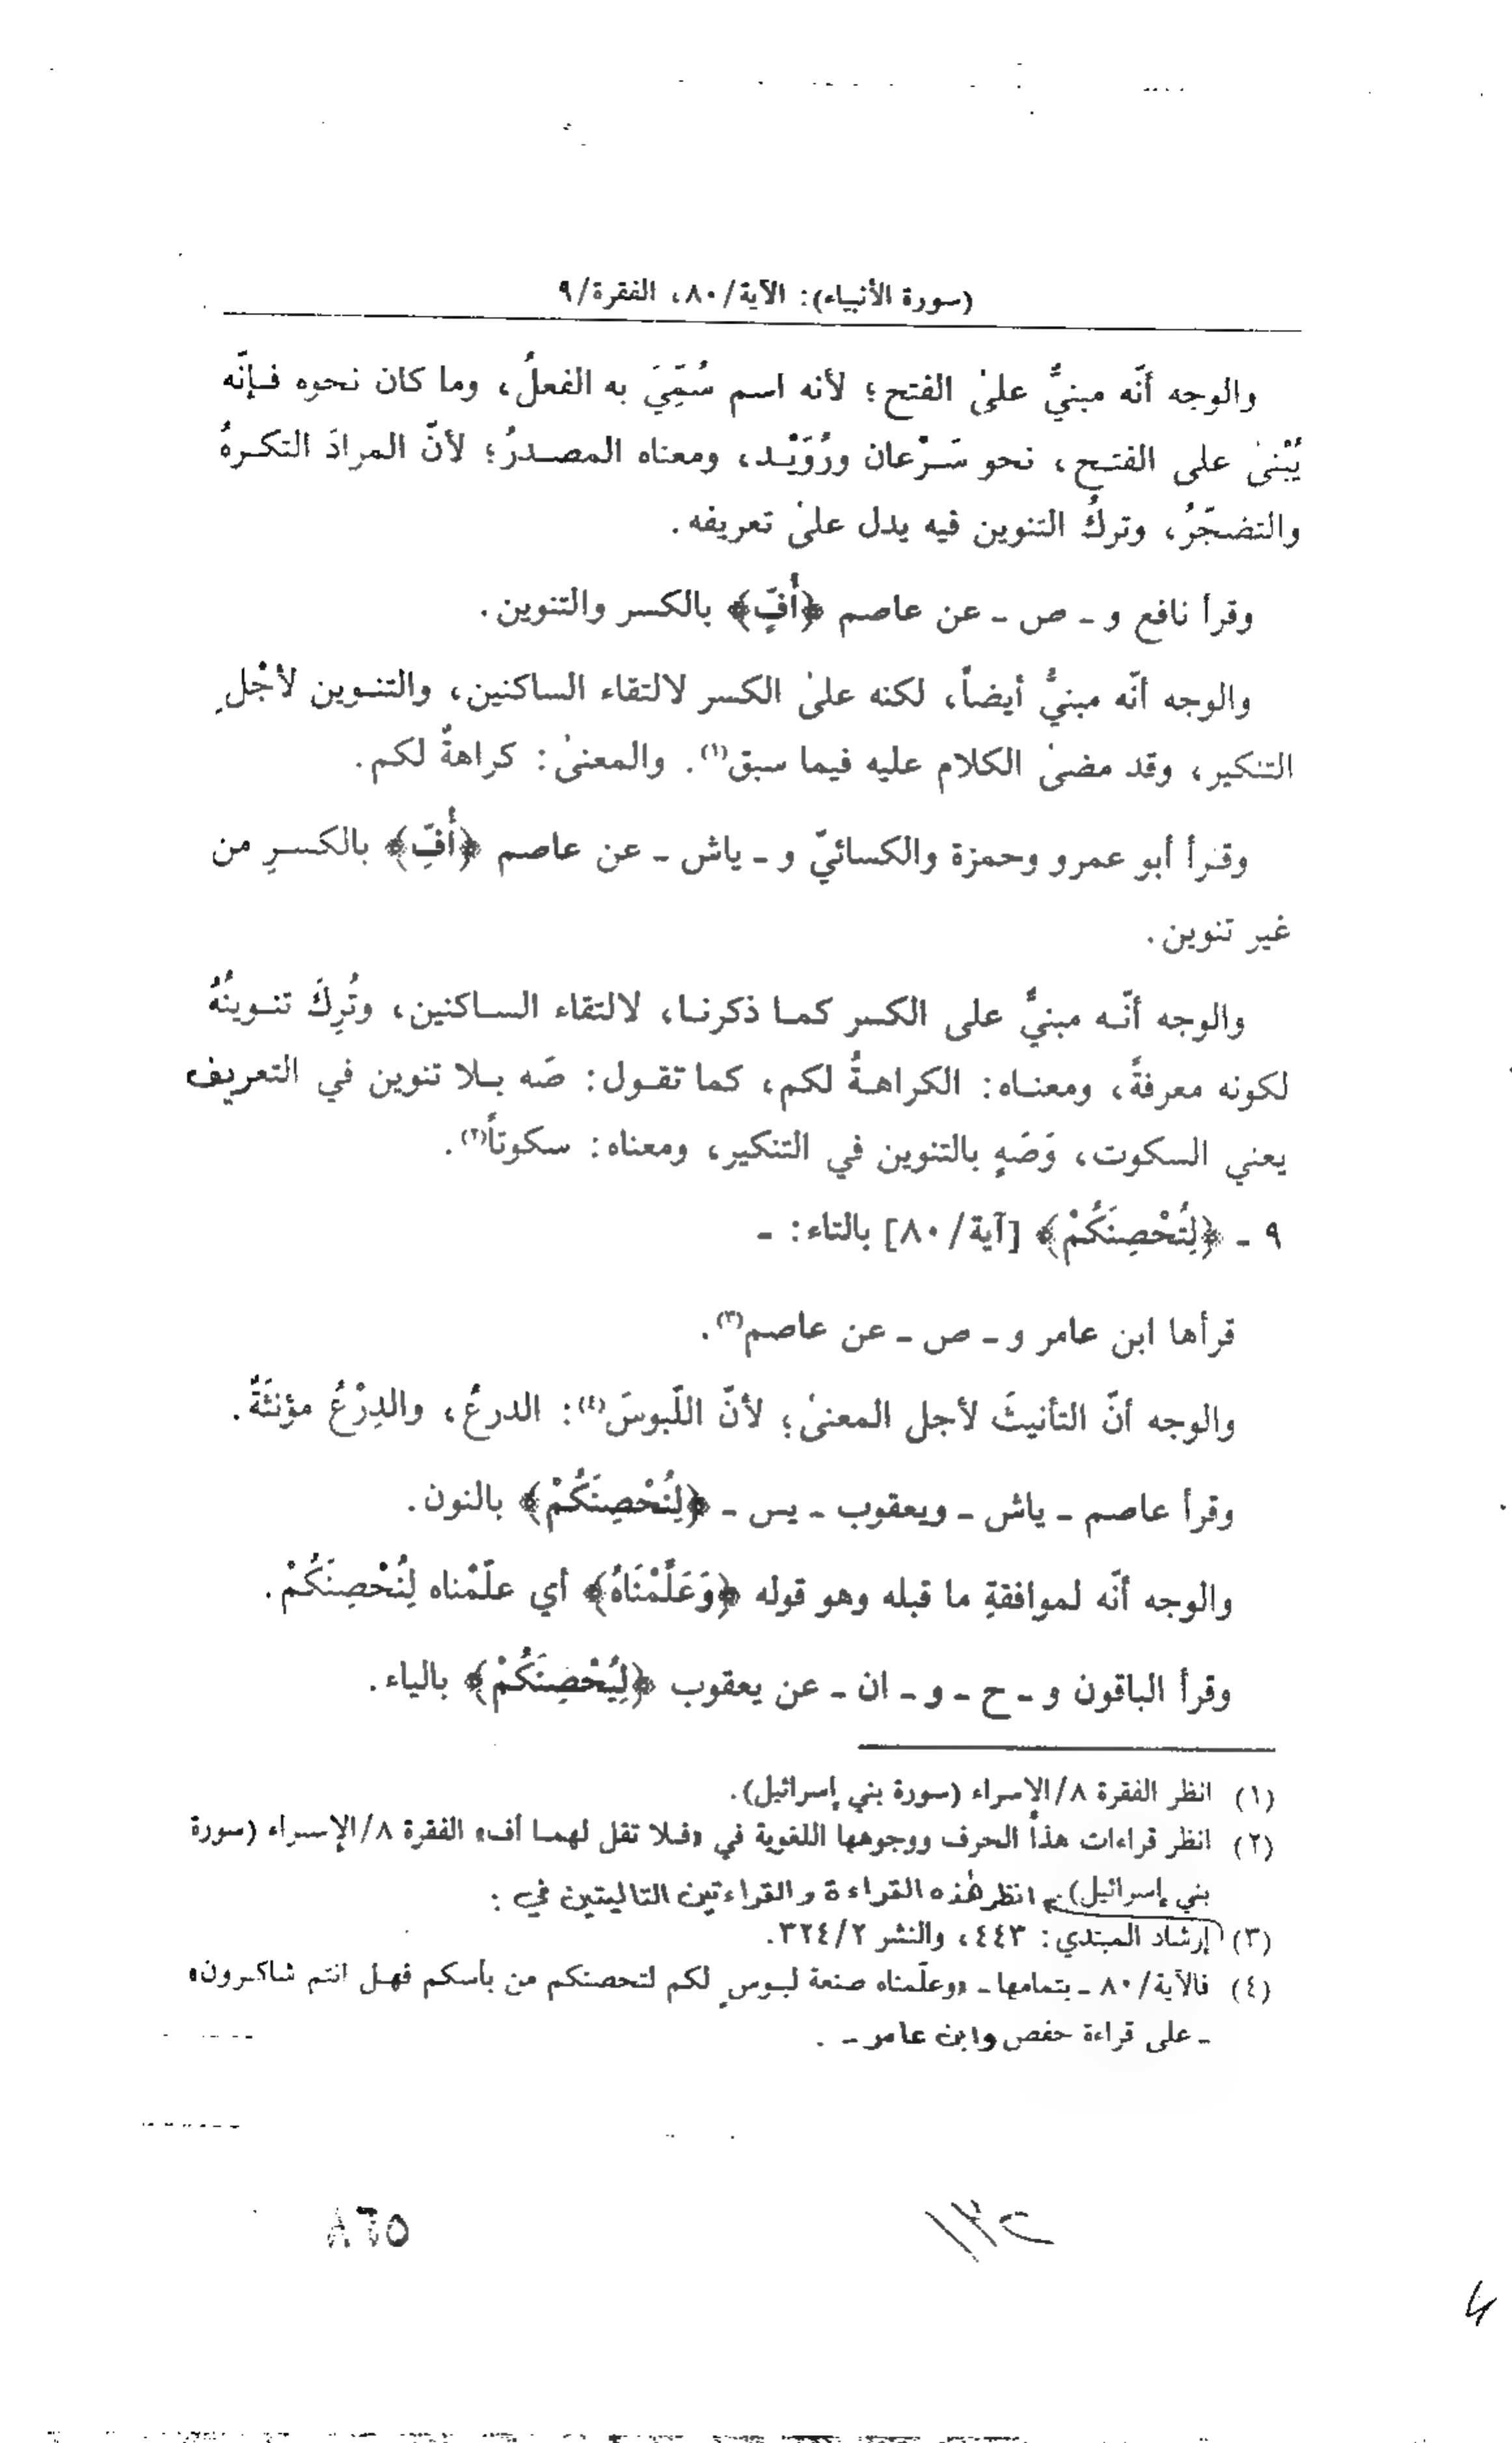 (سورة الأنبياء): الآية/٨٠، الفقرة/٩
والوجه أنّه مبنيٌّ علىٰ الفتح؛ لأنه اسم سُمِّيَ به الفعلُ، وما كان نحوه فإنّه
يُبْنىٰ على الفتح، نحو سَرْعان ورُوَيْد، ومعناه المصدرُ؛ لأنّ المرادَ التكرهُ
والتضجّرُ، وتركُ التنوين فيه يدل علىٰ تعريفه.
وقرأ نافع و ـ ص ـ عن عاصم ﴿أُفٍّ﴾ بالكسر والتنوين.
والوجه أنّه مبنيٌّ أيضاً، لكنه علىٰ الكسر لالتقاء الساكنين، والتنوين لأجْلِ
التنكير، وقد مضىٰ الكلام عليه فيما سبق(١). والمعنىٰ: كراهةٌ لكم.
وقرأ أبو عمرو وحمزة والكسائيّ و ـ ياش ـ عن عاصم ﴿أُفِّ﴾ بالكسرِ من
غير تنوين.
والوجه أنّه مبنيٌّ على الكسر كما ذكرنا، لالتقاء الساكنين، وتُرِكَ تنوينُهُ
لكونه معرفةً، ومعناه: الكراهةُ لكم، كما تقول: صَه بلا تنوين في التعريف
يعني السكوت، وَصَهٍ بالتنوين في التنكير، ومعناه: سكوتاً(٢).
٩ ـ ﴿لِتُحْصِنَكُمْ﴾ [آية/٨٠] بالتاء: ـ
قرأها ابن عامر و ـ ص ـ عن عاصم(٣).
والوجه أنّ التأنيثَ لأجل المعنىٰ؛ لأنّ اللّبوسَ(٤): الدرعُ، والدِرْعُ مؤنثَةٌ.
وقرأ عاصم ـ ياش ـ ويعقوب ـ يس ـ ﴿لِنُحْصِنَكُمْ﴾ بالنون.
والوجه أنّه لموافقةِ ما قبله وهو قوله ﴿وَعَلَّمْنَاهُ﴾ أي علّمْناه لِنُحْصِنَكُمْ.
وقرأ الباقون و ـ ح ـ و ـ ان ـ عن يعقوب ﴿لِيُحْصِنَكُمْ﴾ بالياء.
(١) انظر الفقرة ٨/الإسراء (سورة بني إسرائيل).
(٢) انظر قراءات هذا الحرف ووجوهها اللغوية في «فلا تقل لهما أف» الفقرة ٨/الإسراء (سورة
بني إسرائيل). انظر هٰذه القراءة والقراءتين التاليتين في:
(٣) إرشاد المبتدي: ٤٤٣، والنشر ٣٢٤/٢.
(٤) فالآية/٨٠ ـ بتمامها ـ «وعلّمناه صنعة لبوسٍ لكم لتحصنكم من بأسكم فهل انتم شاكرون»
ـ على قراءة حفص وابن عامر ـ .
٨٦٥